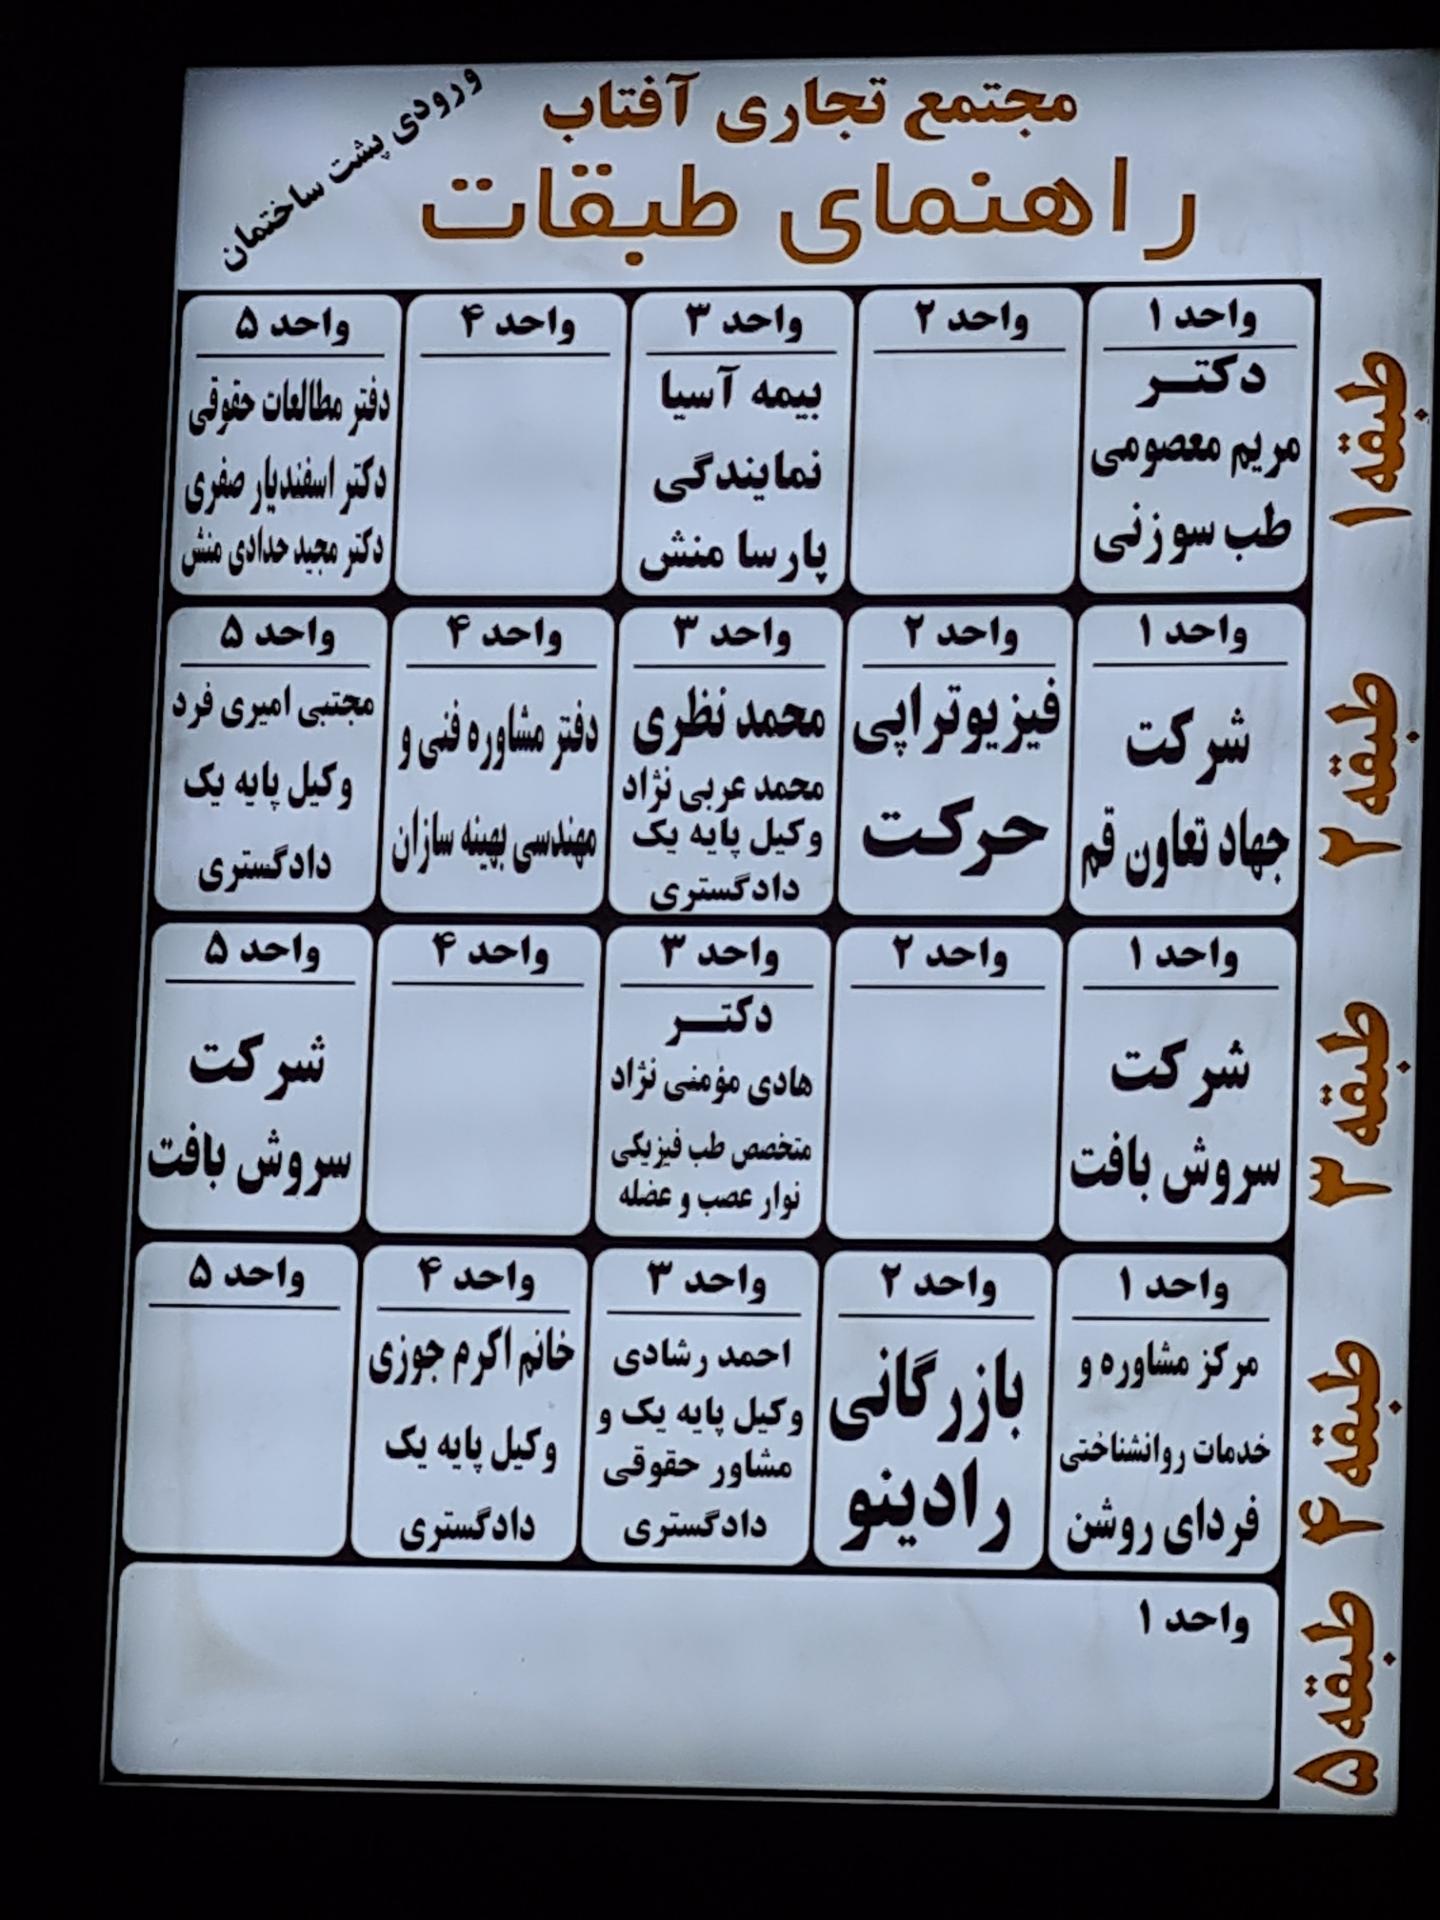 مجتمع تجاری آفتاب
راهنمای طبقات
ورودی پشت ساختمان
طبقه ۱
واحد ۱
دکتـر
مریم معصومی
طب سوزنی
واحد ۲
واحد ۳
بیمه آسیا
نمایندگی
پارسا منش
واحد ۴
واحد ۵
دفتر مطالعات حقوقی
دکتر اسفندیار صفری
دکتر مجید حدادی منش
طبقه ۲
واحد ۱
شرکت
جهاد تعاون قم
واحد ۲
فیزیوتراپی
حرکت
واحد ۳
محمد نظری
محمد عربی نژاد
وکیل پایه یک
دادگستری
واحد ۴
دفتر مشاوره فنی و
مهندسی بهینه سازان
واحد ۵
مجتبی امیری فرد
وکیل پایه یک
دادگستری
طبقه ۳
واحد ۱
شرکت
سروش بافت
واحد ۲
واحد ۳
دکتـر
هادی مؤمنی نژاد
متخصص طب فیزیکی
نوار عصب و عضله
واحد ۴
واحد ۵
شرکت
سروش بافت
طبقه ۴
واحد ۱
مرکز مشاوره و
خدمات روانشناختی
فردای روشن
واحد ۲
بازرگانی
رادینو
واحد ۳
احمد رشادی
وکیل پایه یک و
مشاور حقوقی
دادگستری
واحد ۴
خانم اکرم جوزی
وکیل پایه یک
دادگستری
واحد ۵
طبقه ۵
واحد ۱